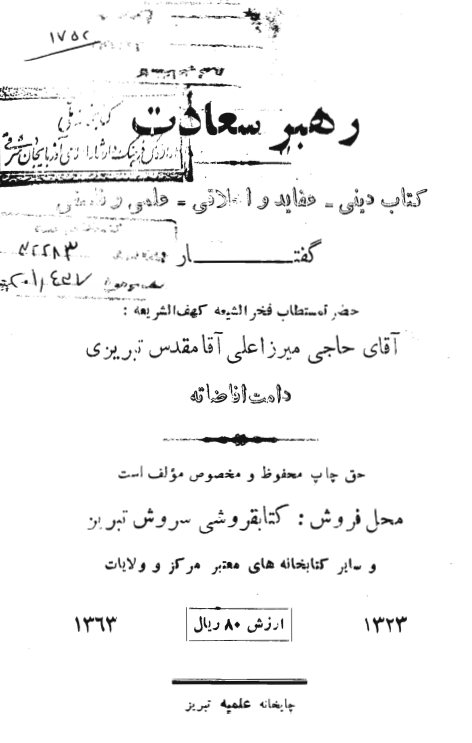 ۱۷۵۲
رهبر سعادت
کتابخانه ملی
کتاب دینی - عقاید و اخلاقی - علمی و
گفتار
حضرتمستطاب فخرالشیعه کهف‌الشریعه :
آقای حاجی میرزاعلی آقامقدس تبریزی
دامت افاضاته
حق چاپ محفوظ و مخصوص مؤلف است
محل فروش : کتابفروشی سروش تبریز
و سایر کتابخانه های معتبر مرکز و ولایات
۱۳۲۳
ارزش ۸۰ ریال
۱۳۶۳
چاپخانه علمیه تبریز